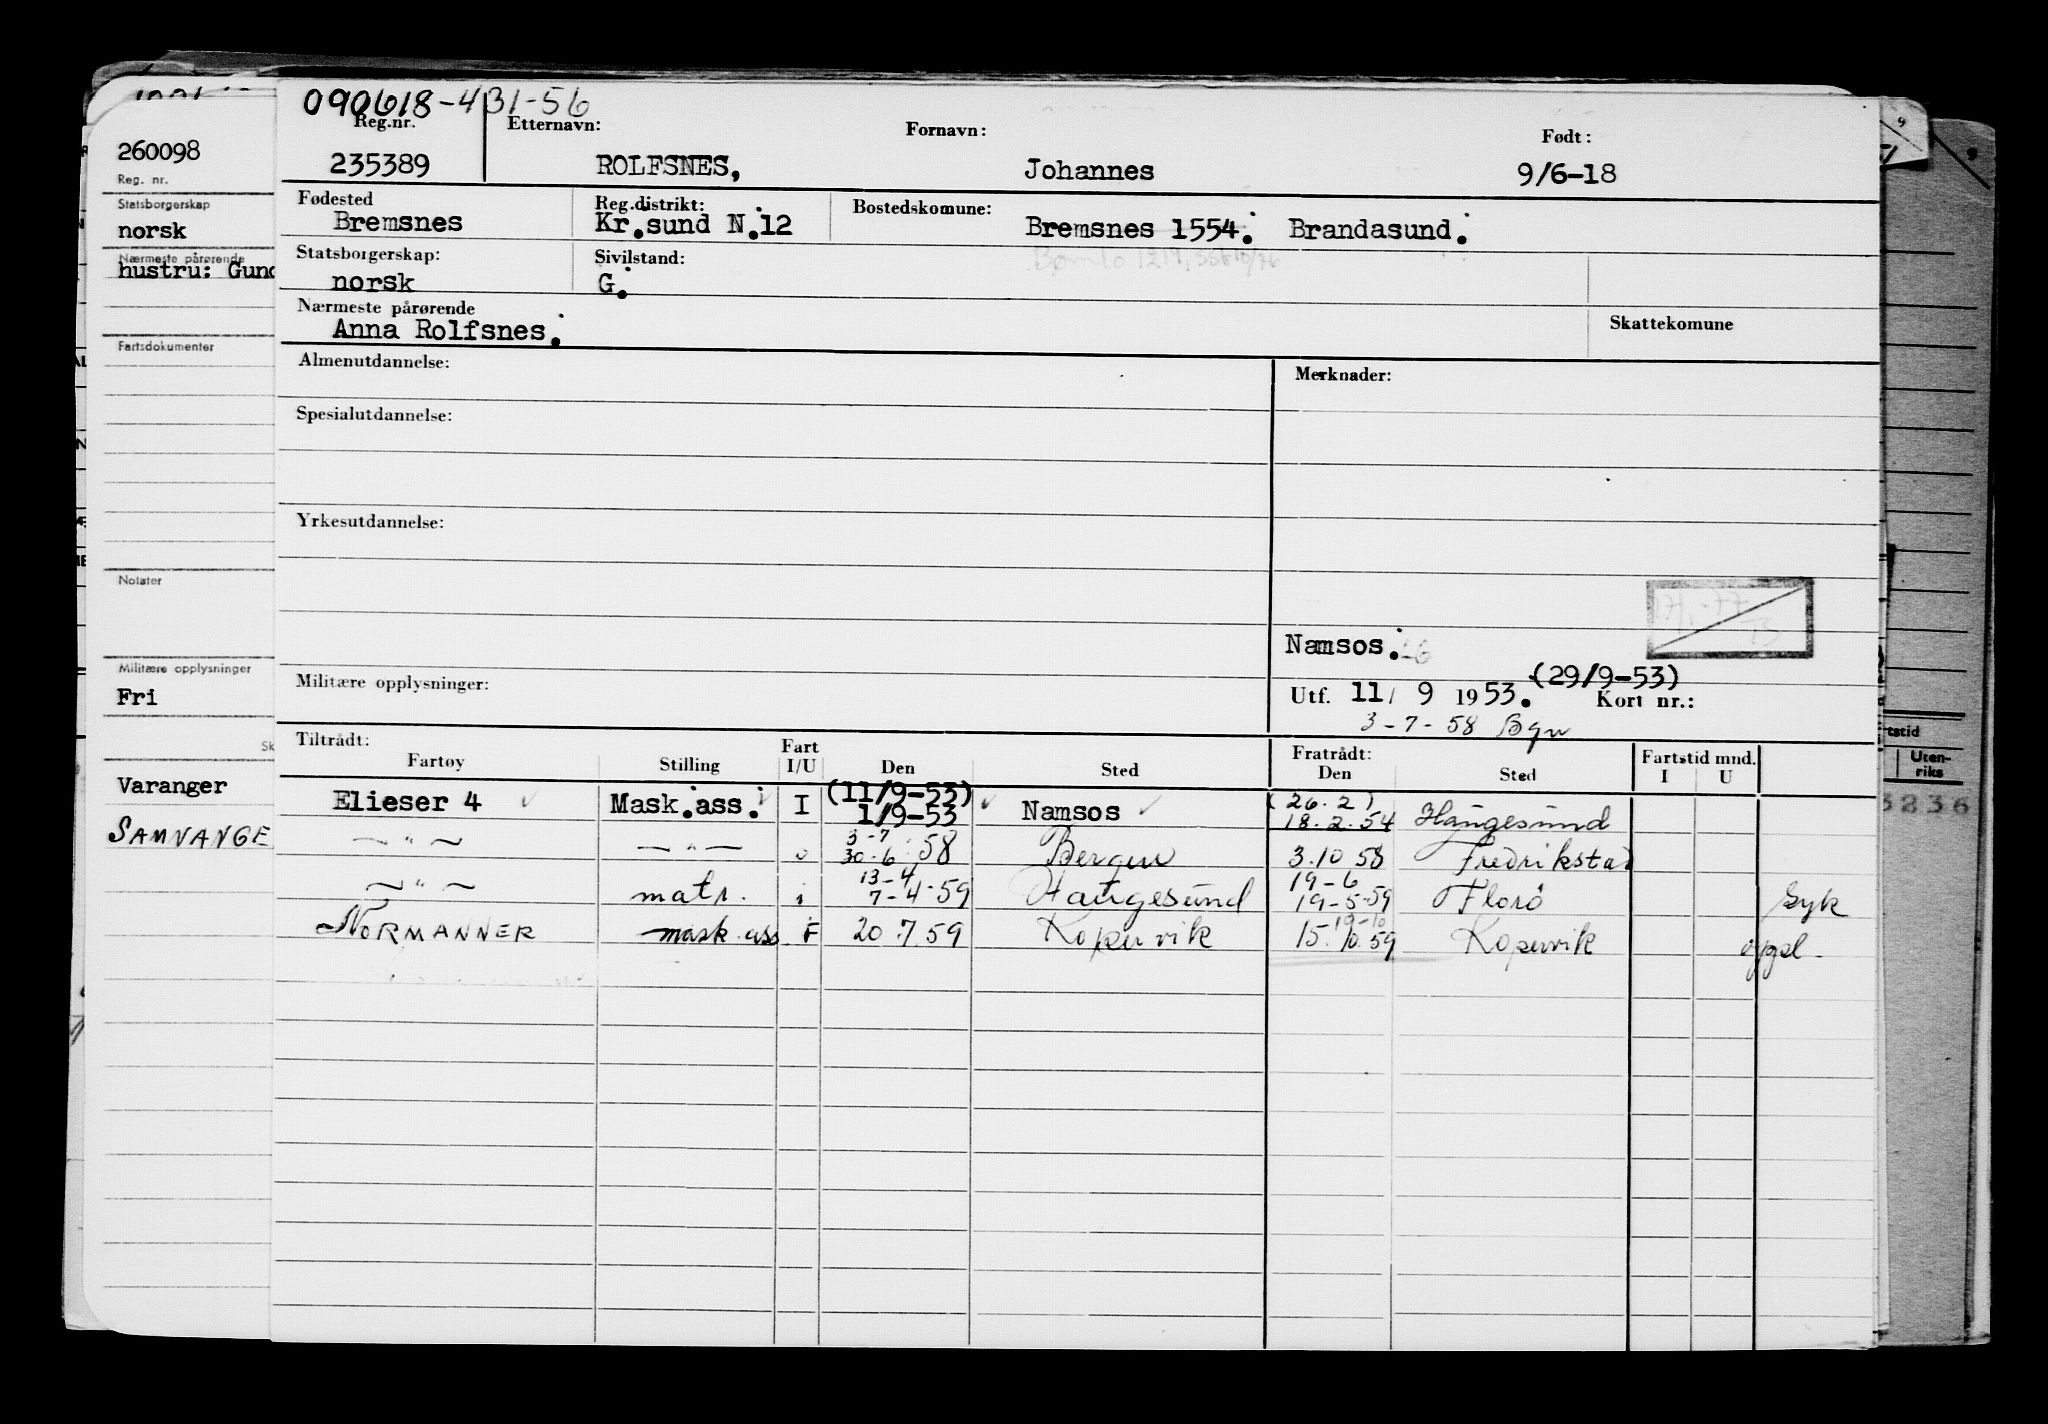 090618-43156
Reg.nr. Etternavn: Fornavn: Født:
235389 ROLFSNES, Johannes 9/6-18
Fødested Reg.distrikt: Bostedskomune:
Bremsnes Kr.sund N.12 Bremsnes 1554. Brandasund.
Statsborgerskap: Sivilstand: Bømlo 1219,
norsk G.
Nærmeste pårørende
Anna Rolfsnes. Skattekomune
Almenutdannelse: Merknader:
Spesialutdannelse:
Yrkesutdannelse:
Namsos.
Militære opplysninger: (29/9-53)
Utf. 11/ 9 1953. Kort nr.:
3-7-58 Bgn
Tiltrådt: Fart Fratrådt: Fartstid mnd.
Fartøy Stilling I/U Den Sted Den Sted I U
(11/9-53) (26.2)
Elieser 4 Mask.ass. I 1/9-53 Namsos 18.2.54 Haugesund
3-7
— " — — " — 30-6-58 Bergen 3.10 58 Fredrikstad
13-4 19-6
— " — matr. i 7-4-59 Haugesund 19-5-59 Florø Syk
19-10
NORMANNER mask.ass F 20.7.59 Kopervik 15.10.59 Kopervik oppl.
260098
Reg. nr.
Statsborgerskap
norsk
Nærmeste pårørende
hustru: Gund
Fartsdokumenter
Notater
Militære opplysninger
Fri
Sk
Varanger
SAMNANGE
tstid
Uten-
riks
3236